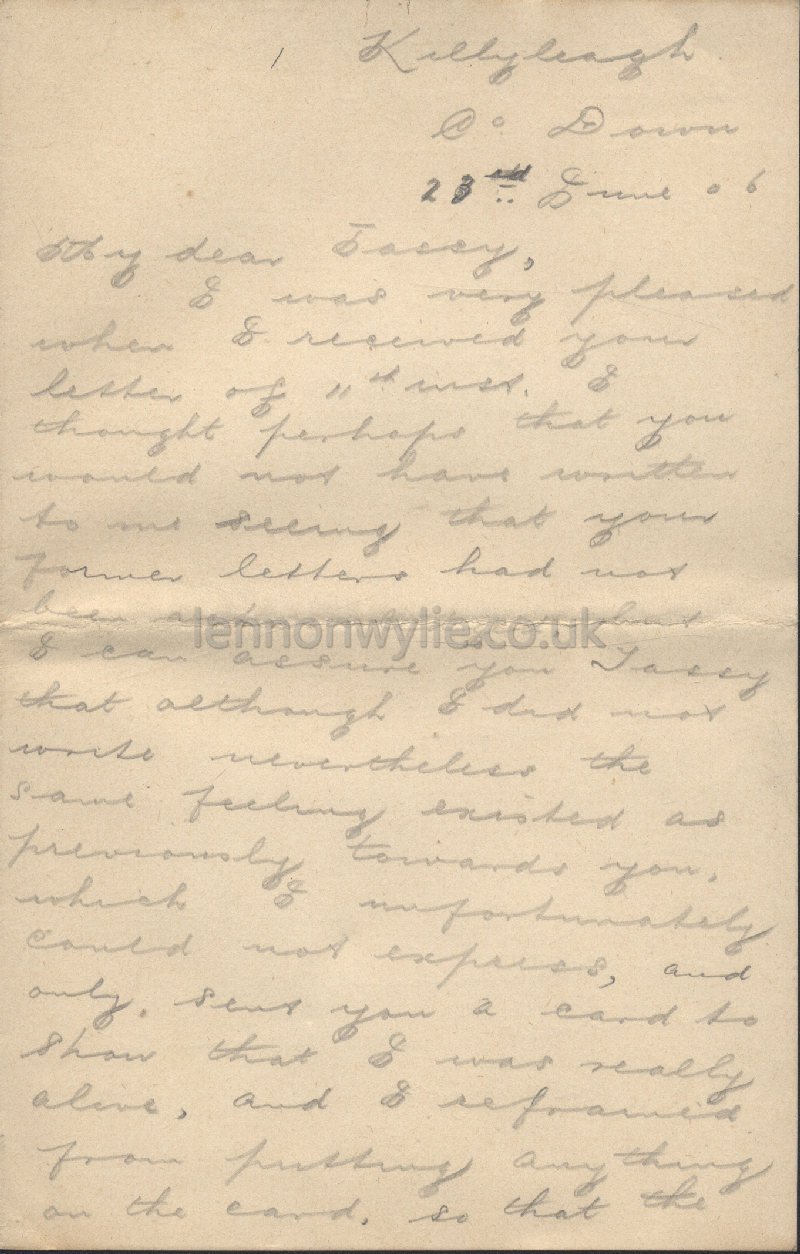 Killyleagh.
Co. Down
23rd June 06
My dear Tassey,
I was very pleased
when I received your
letter of 11th inst. I
thought perhaps that you
would not have written
to me seeing that your
former letters had not
been but
lennonwylie.co.uk
I can assure you Tassey
that although I did not
write nevertheless the
same feeling existed as
previously towards you,
which I unfortunately
could not express, and
only, sent you a card to
show that I was really
alive, and I refrained
from putting anything
on the card, so that the